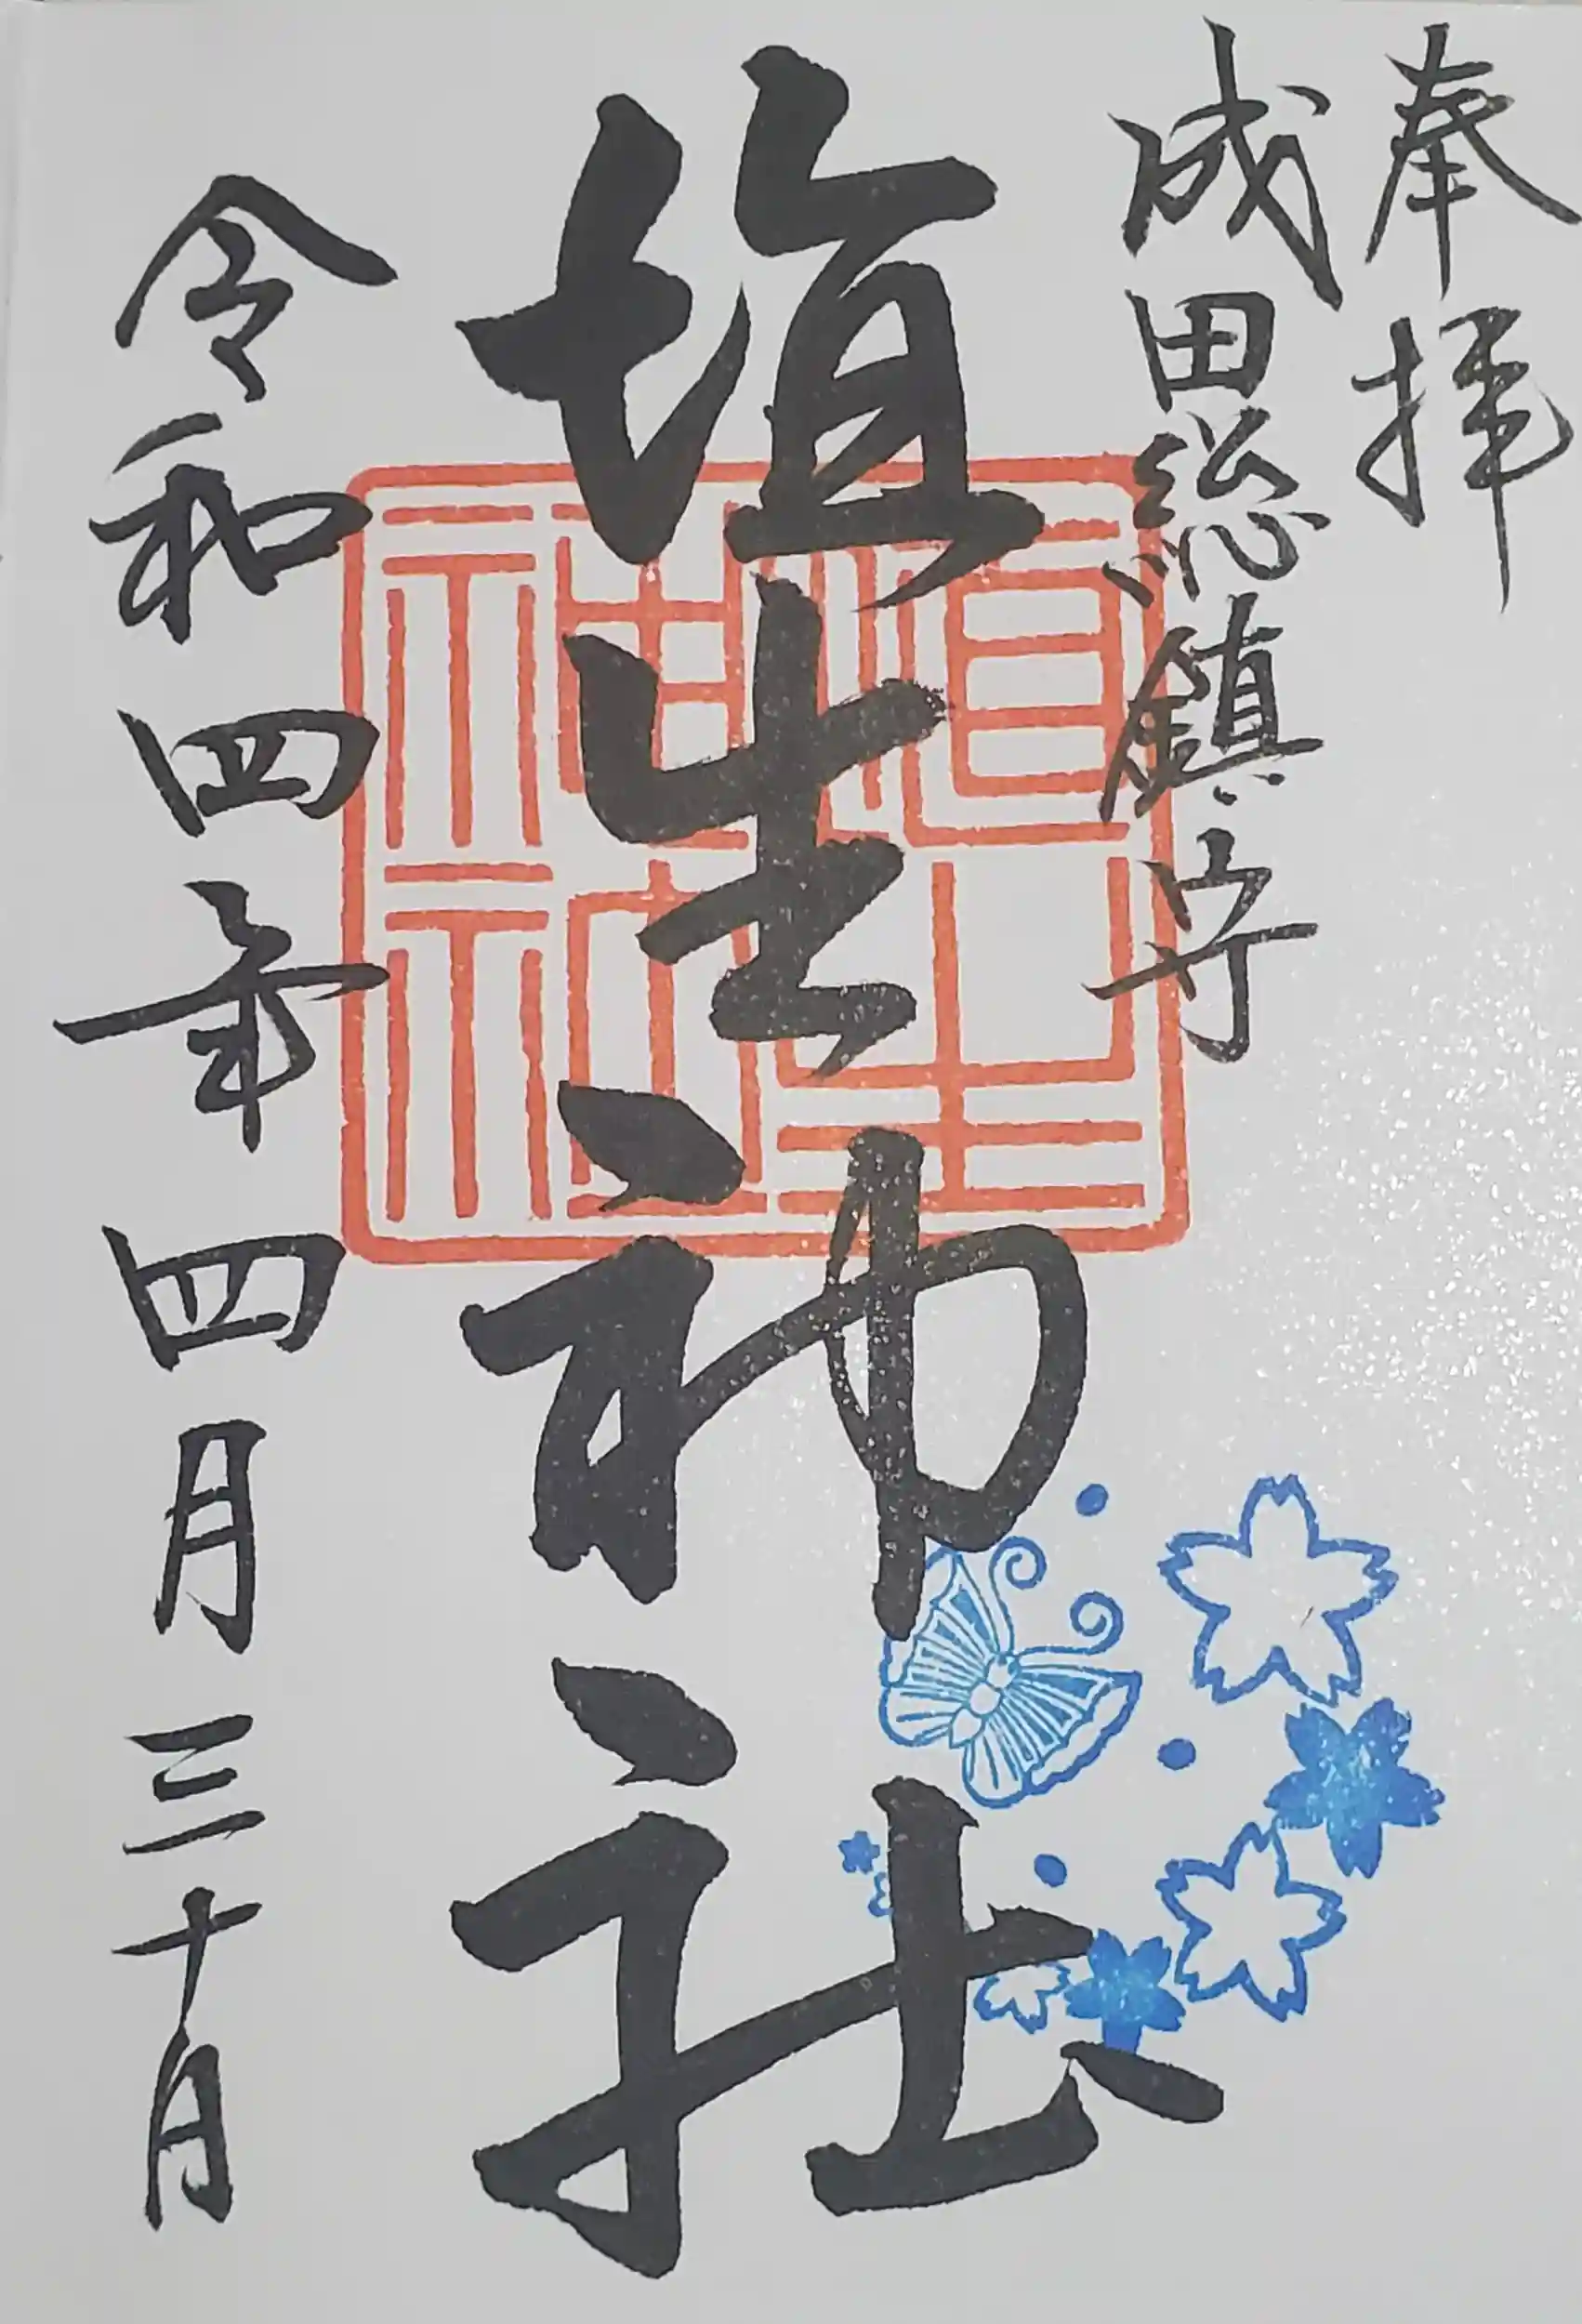 奉拝
成田総鎮守
埴生神社
令和四年四月三十日
埴生
神社